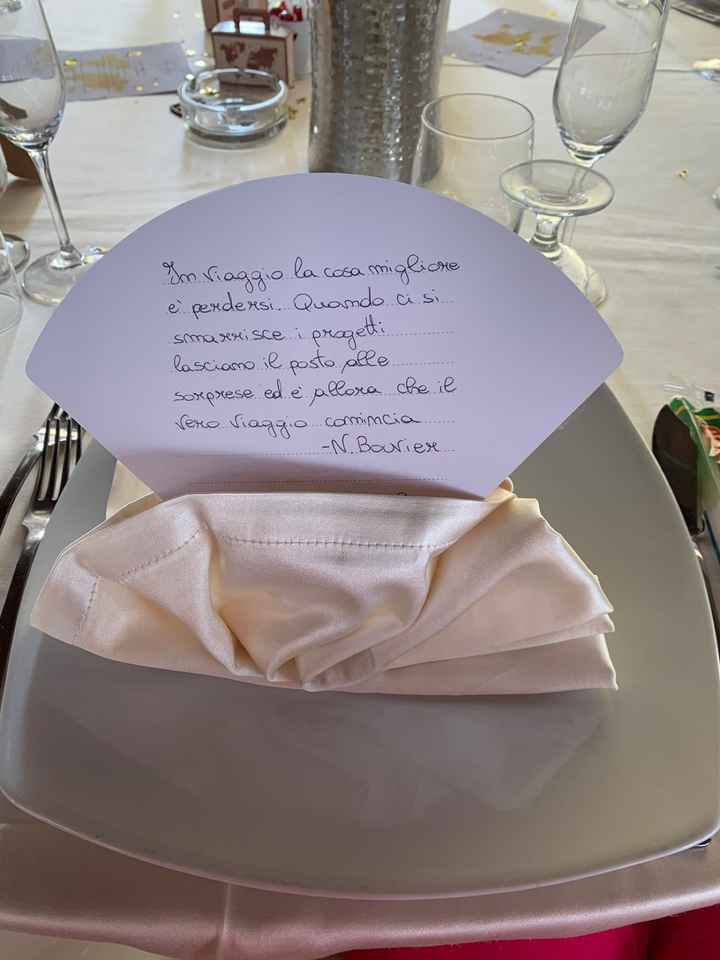 In viaggio la cosa migliore
e' perdersi. Quando ci si
smarrisce i progetti
lasciano il posto alle
sorprese ed e' allora che il
vero viaggio comincia
-N. Bouvier